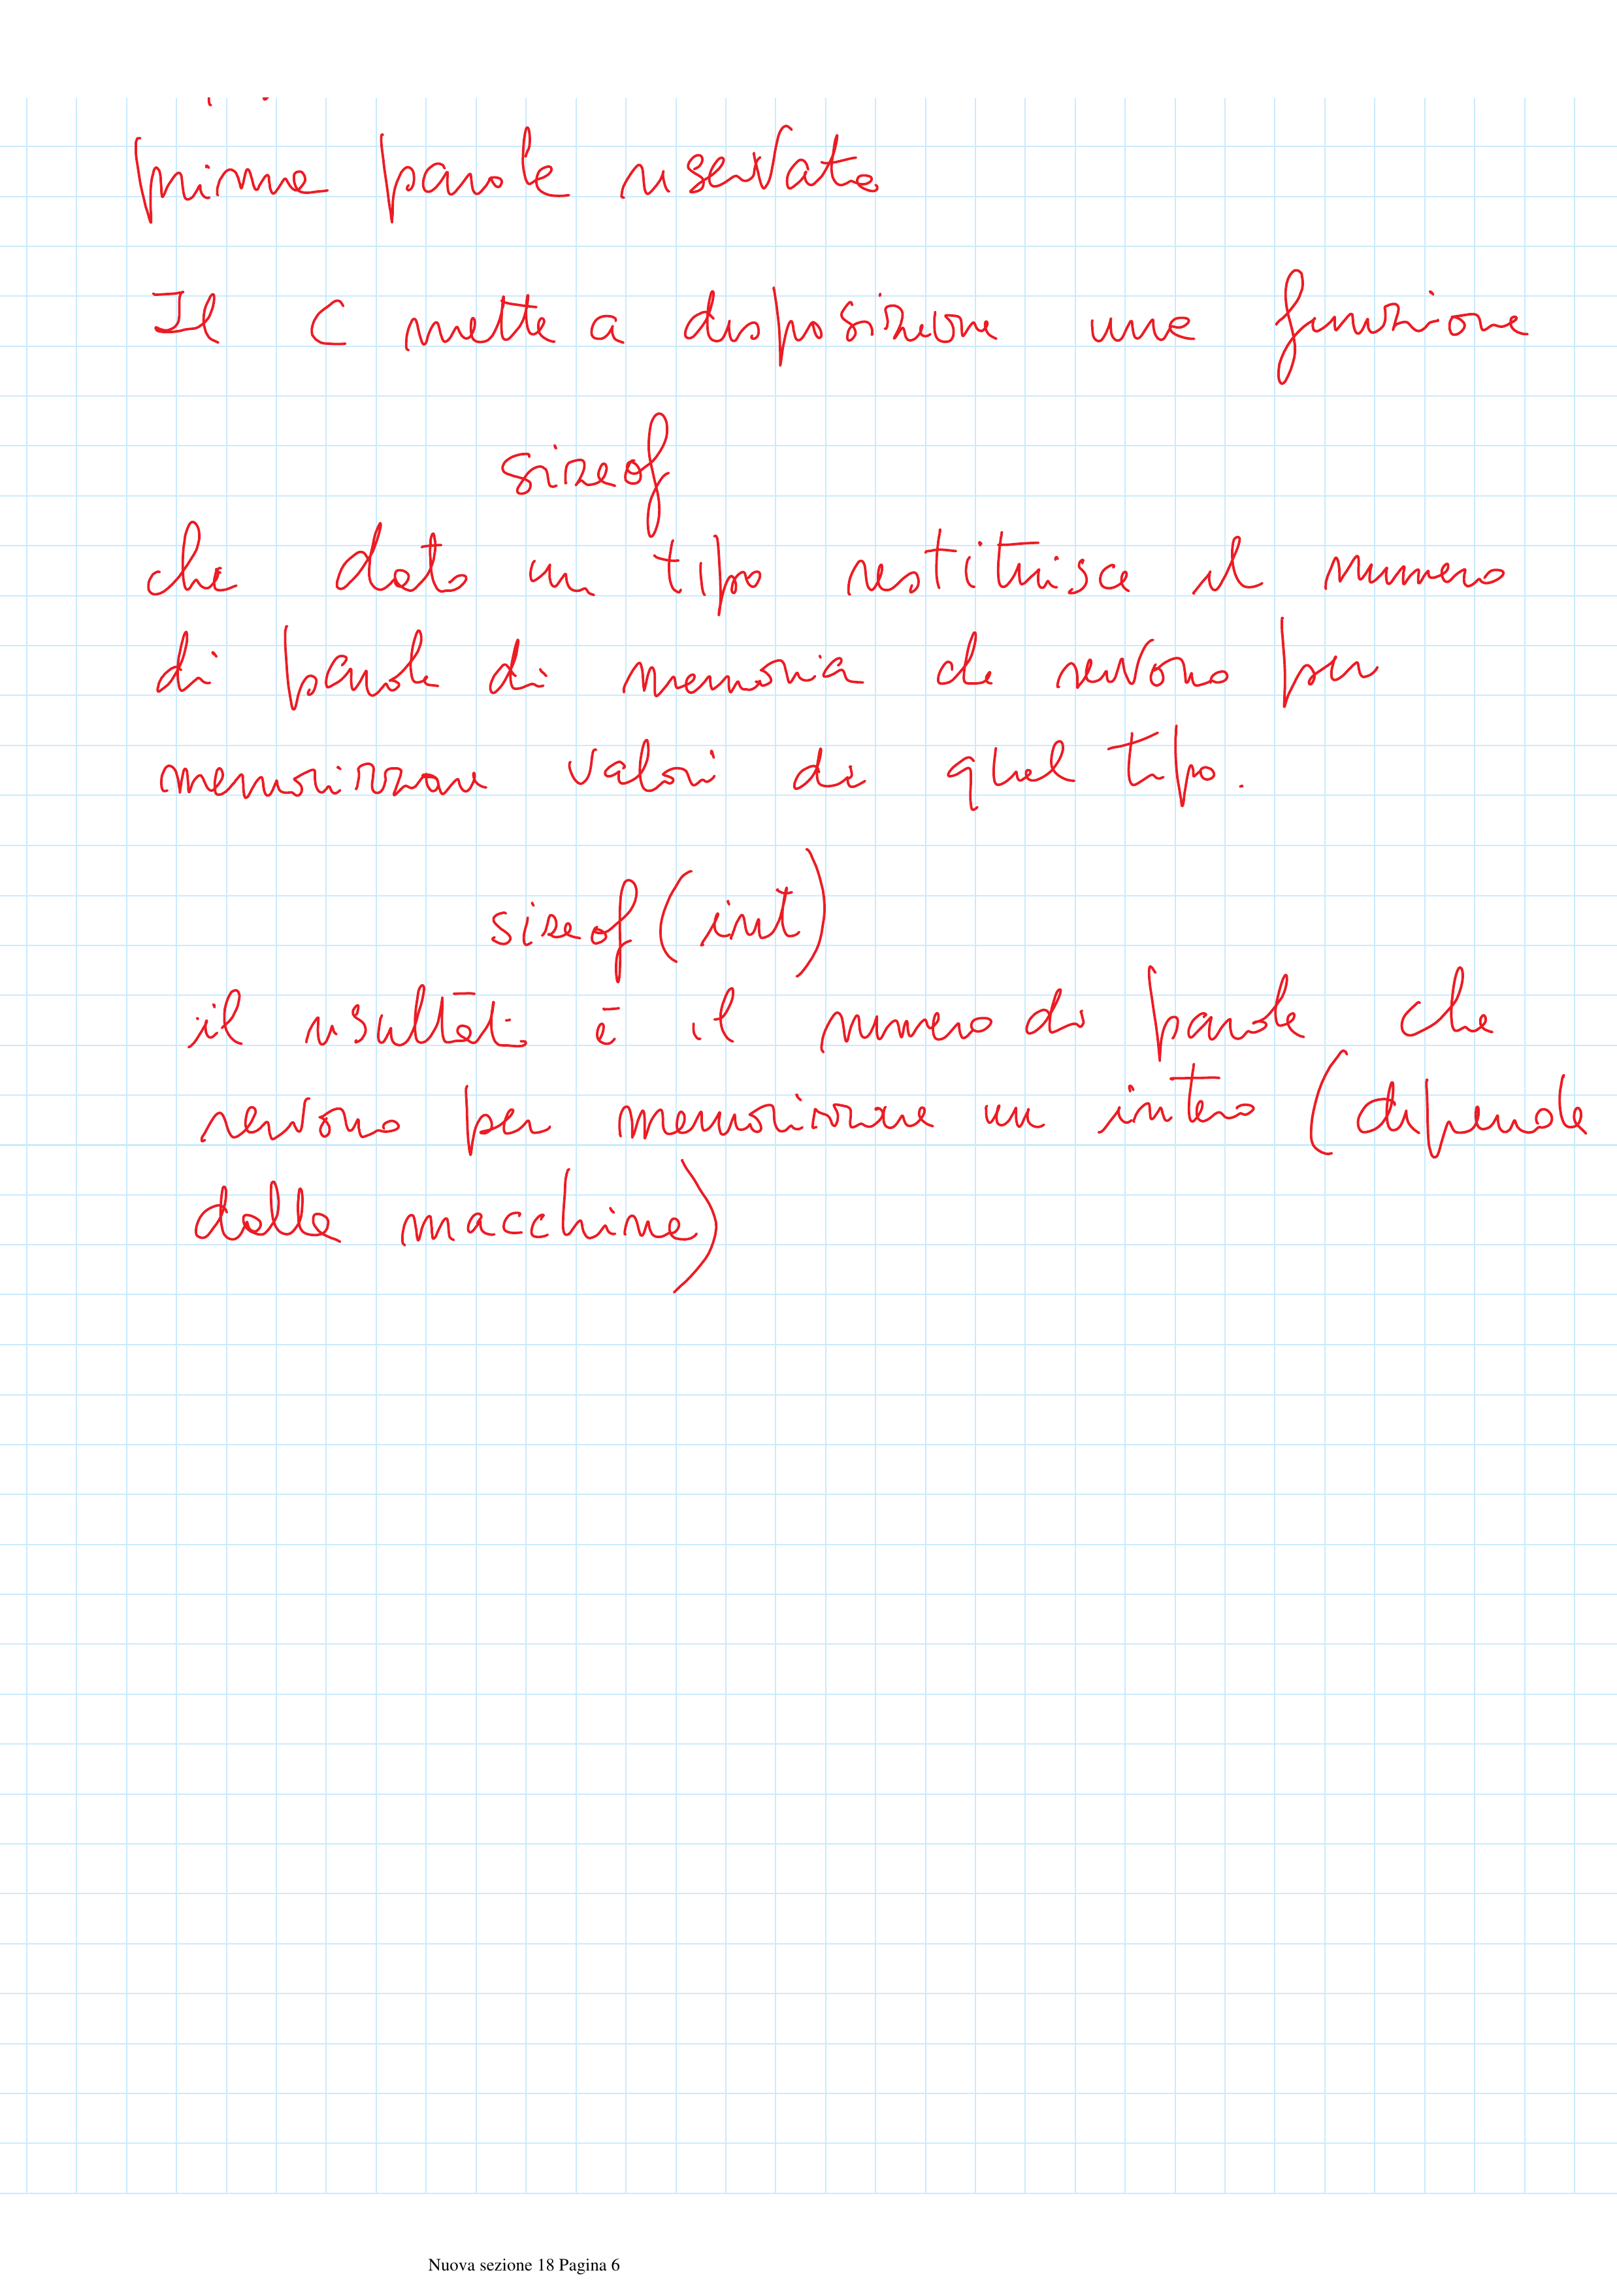 prima parola riservata
Il C mette a disposizione una funzione
sizeof
che dato un tipo restituisce il numero
di parole di memoria che servono per
memorizzare valori di quel tipo.
sizeof(int)
il risultato è il numero di parole che
servono per memorizzare un intero (dipende
dalla macchina)
Nuova sezione 18 Pagina 6